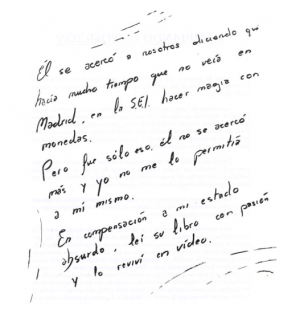 Él se acercó a nosotros diciendo que
hacía mucho tiempo que no veía en
Madrid, en la S.E.I. hacer magia con
monedas.
Pero fue sólo eso, él no se acercó
más y yo no me lo permitía
a mi mismo.
En compensación a mi estado
absurdo, leí su libro con pasión
y lo reviví en vídeo.